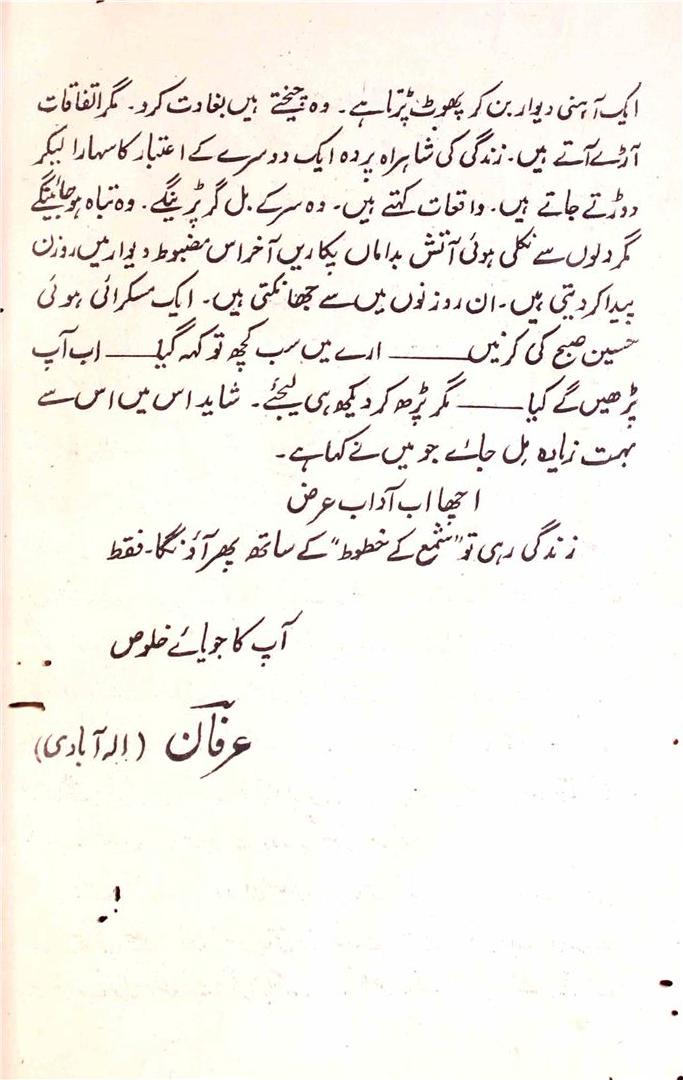 ایک آہنی دیوار بن کر پھوٹ پڑتا ہے۔ وہ چیختے ہیں بغاوت کردو۔ مگر اتفاقات
آڑے آتے ہیں۔ زندگی کی شاہراہ پر وہ ایک دوسرے کے اعتبار کا سہارا لیکر
دوڑتے جاتے ہیں۔ واقعات کہتے ہیں۔ وہ سر کے بل گر پڑینگے۔ وہ تباہ ہو جائینگے
مگر دلوں سے نکلی ہوئی آتش بداماں پکاریں آخر اس مضبوط دیوار میں روزن
پیدا کر دیتی ہیں۔ ان روزنوں میں سے جھانکتی ہیں۔ ایک مسکراتی ہوئی
حسین صبح کی کرنیں ــــــ ارے میں سب کچھ تو کہہ گیا ــــــ اب آپ
پڑھیں گے کیا ــــــ مگر پڑھ کر دیکھ ہی لیجئے۔ شاید اس میں اس سے
بہت زیادہ مل جائے جو میں نے کہا ہے۔
اچھا اب آداب عرض
زندگی رہی تو "شمع کے خطوط" کے ساتھ پھر آؤنگا۔ فقط
آپ کا جویائے خلوص
عرفان (الہ آبادی)